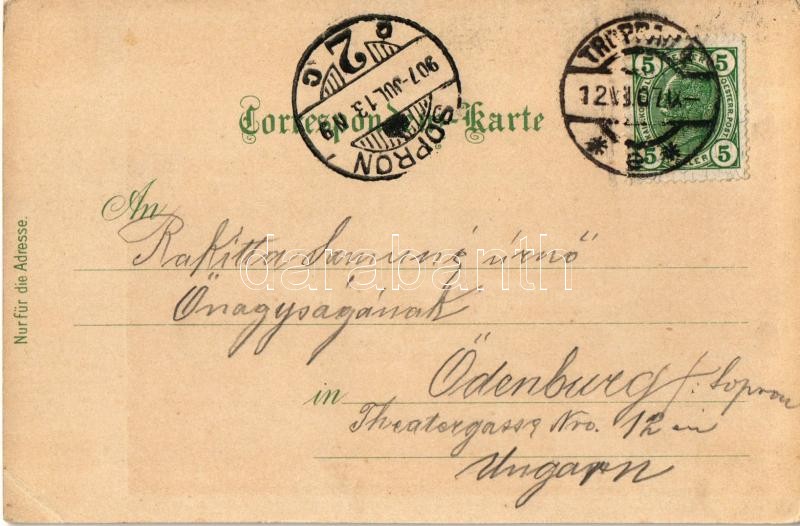 SOPRON
907-JUL.13.N9
P 2 C
12 VII 07
5 5
OESTERR.POST
5 HELLER 5
Correspondenz-Karte
An
Rakitta Samuné úrnő
Önagyságának
in Ödenburg /: Sopron
Theatergasse Nro. 12 in
Ungarn
Nur für die Adresse.
darabanth